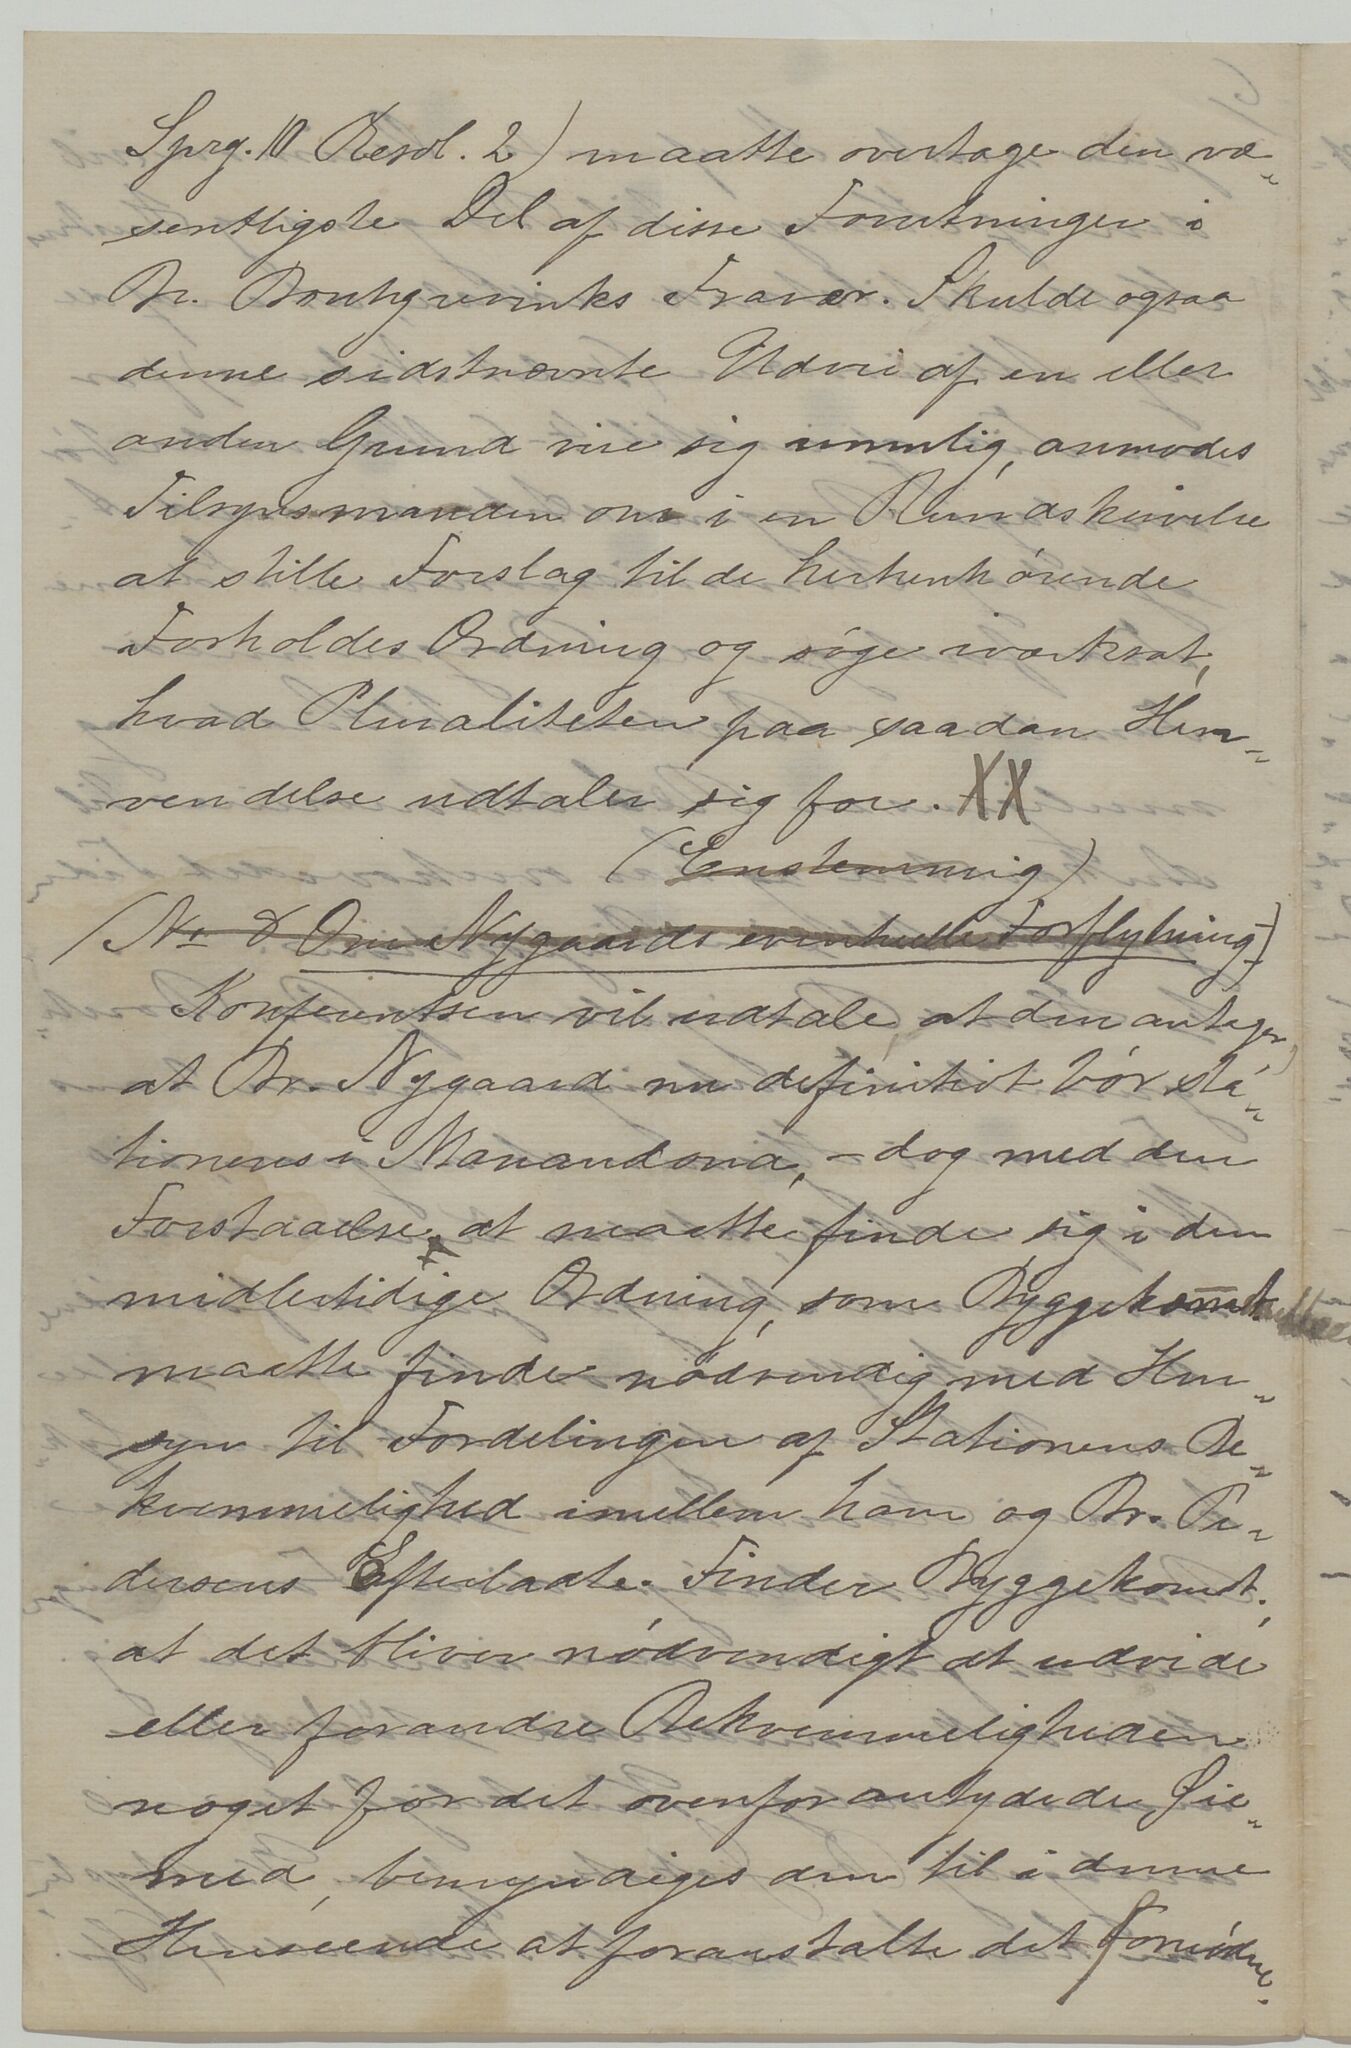 Sprg. 10 Resol. 2) maatte overtage den væ-
sentligste Del af disse Forretninger i
Br. Borchgrevinks Fravær. Skulde ogsaa
denne sidstnævnte Udvei af en eller
anden Grund vise sig umulig, anmodes
Tilsynsmanden om i en Rundskrivelse
at stille Forslag til de herhenhørende
Forholdes Ordning og søge iværksat,
hvad Pluraliteten paa saadan Hen-
vendelse udtaler sig for. XX
(Enstemmig)
(No 8 Om Nygaards eventuelle Forflytning.)
Konferentsen vil udtale, at den antager,
at Br. Nygaard nu definitivt bør sta-
tioneres i Manandona, - dog med den
Forstaaelse at maatte finde sig i den
midlertidige Ordning, som Byggekomit
maatte finde nødvendig med Hen-
syn til Fordelingen af Stationens Be-
kvemmelighed imellem ham og Br. Pe-
dersens Efterladte. Finder Byggekomt.,
at det bliver nødvendigt at udvide
eller forandre Bekvemmeligheden
noget for det ovenfor antydede Øie-
med, bemyndiges den til i denne
Henseende at foranstalte det Fornødne.